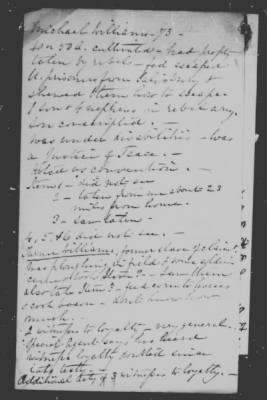 Michael Williams - 73 -
Son 50 a. cultivated - had property
taken by rebels - fed escaped
U. prisoners from Salisbury &
showed them how to escape.
1 son & nephews in rebel army.
Son conscripted. -
Was under disabilities - was
a Justice of Peace. -
Voted vs convention. -
Items 1 - did not see
2 - taken from me about 23
miles from home.
3 - saw taken -
4, 5, & 6 did not see. -
Williams, former slave of claimt,
was ploughing the field of
Saw them
also take Item 3 - fed corn to horses
& took bacon - don't know how
much. -
2 witnesses to loyalty - very general.
Special agent says has heard
witness' loyalty doubted since
taking testy. -
Additional testy of 3 witnesses to loyalty. -